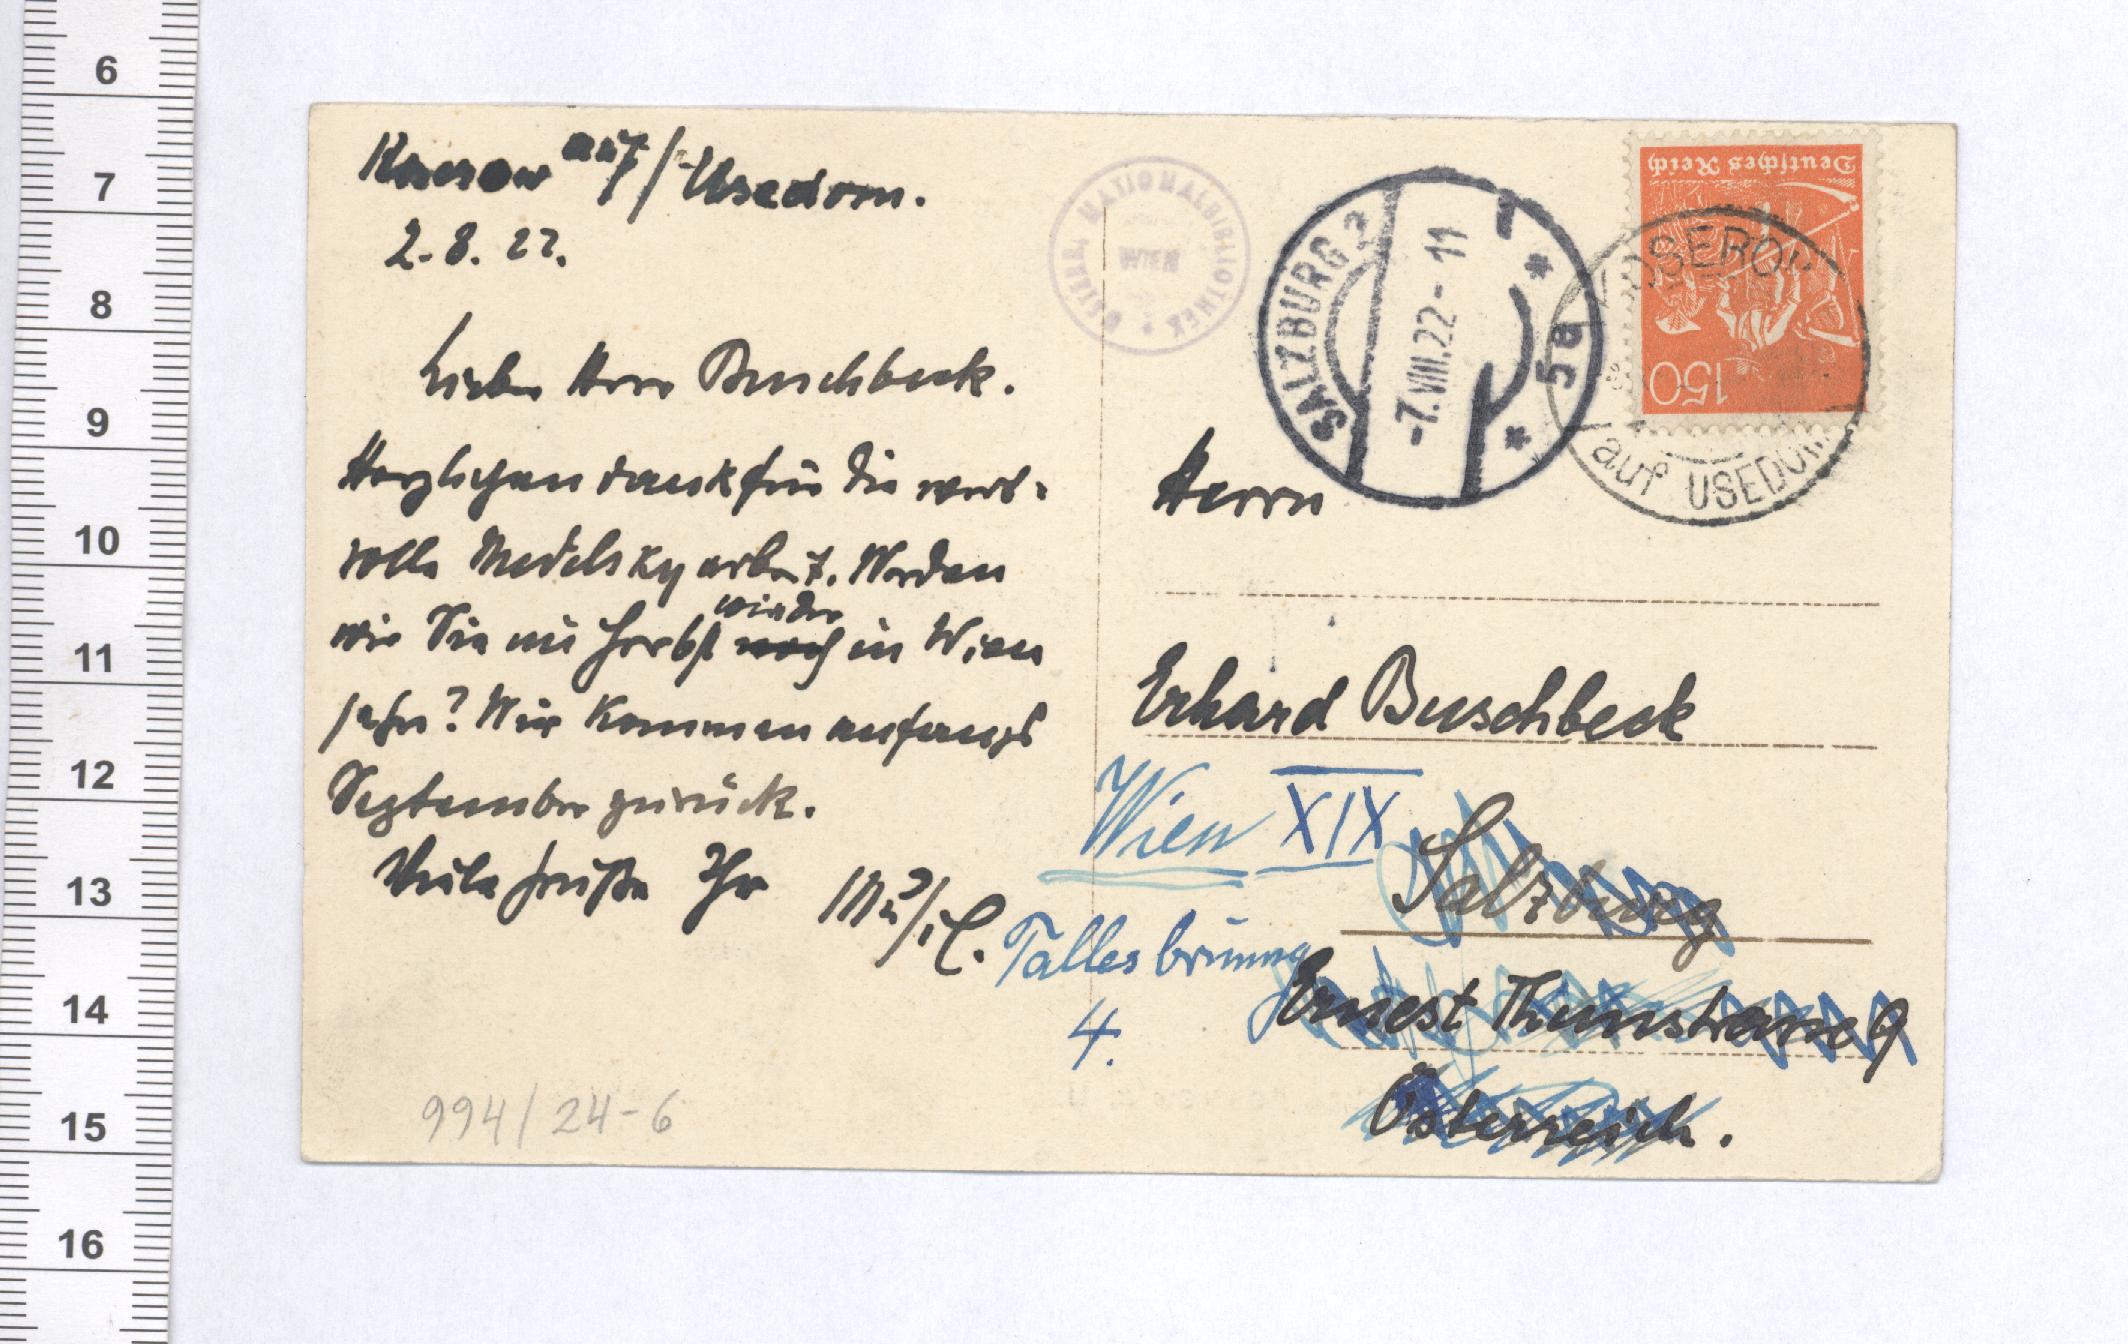 Koserow auf/Usedom.
2.8.22.
Lieber Herr Buschbeck.
Herzlichen dank für die wert-
volle Medelsky arbeit. Werden
wir Sie im Herbst noch wieder in Wien
sehn? Wir kommen anfangs
September zurück.
Viele grüße Ihr
ÖSTERR. NATIONALBIBLIOTHEK
WIEN
SALZBURG 2
-7.VIII.22-11
* 5a *
Deutsches Reich
150
KOSEROW
auf USEDOM
Herrn
Erhard Buschbeck
Wien XIX
Salzburg
Tallesbrunng
4.
Ernest Thunstrasse 9
Österreich.
994/24-6
6
7
8
9
10
11
12
13
14
15
16